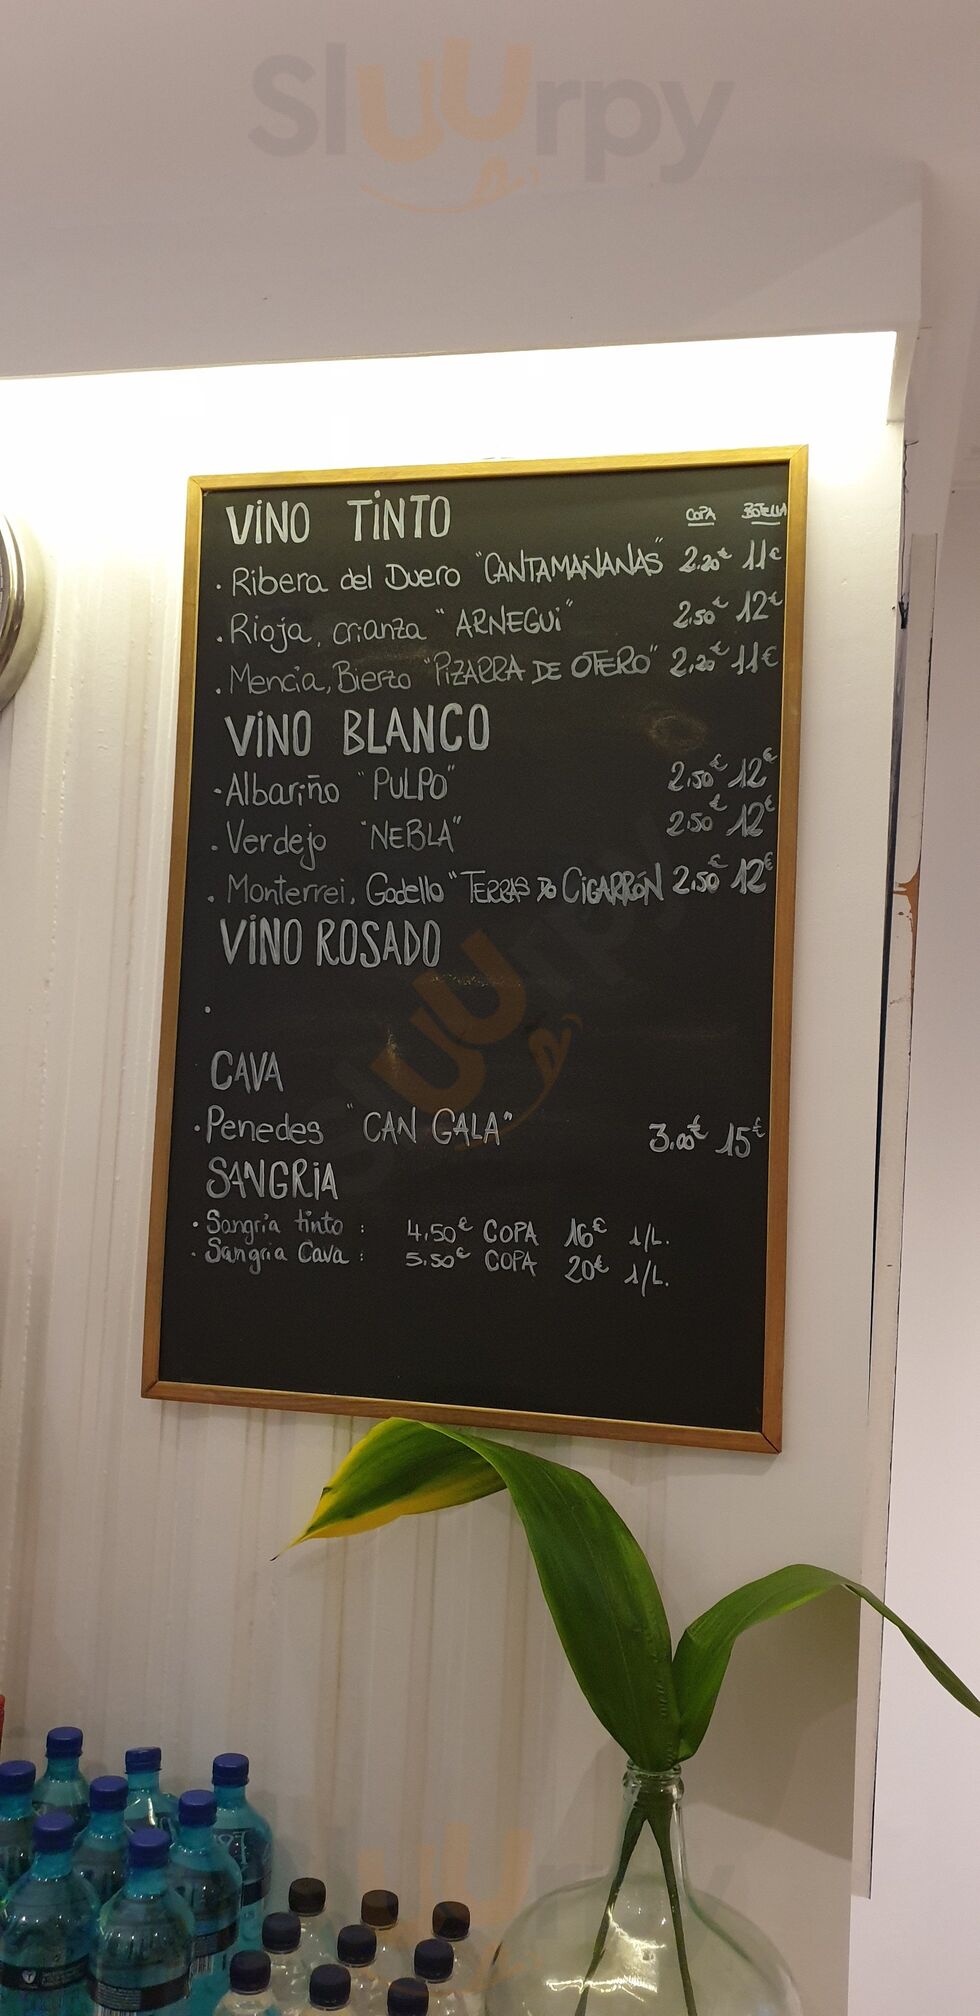 Sluurpy
VINO TINTO COPA BOTELLA
· Ribera del Duero "CANTAMAÑANAS" 2,20€ 11€
· Rioja, crianza "ARNEGUI" 2,50€ 12€
· Mencia, Bierzo "PIZARRA DE OTERO" 2,20€ 11€
VINO BLANCO
· Albariño "PULPO" 2,50€ 12€
· Verdejo "NEBLA" 2,50€ 12€
· Monterrei, Godello "TERRAS DO CIGARRÓN 2,50€ 12€
VINO ROSADO
·
Sluurpy
CAVA
· Penedes "CAN GALA" 3,00€ 15€
SANGRIA
· Sangría tinto : 4,50€ COPA 16€ 1/L.
· Sangria Cava : 5,50€ COPA 20€ 1/L.
Sluurpy